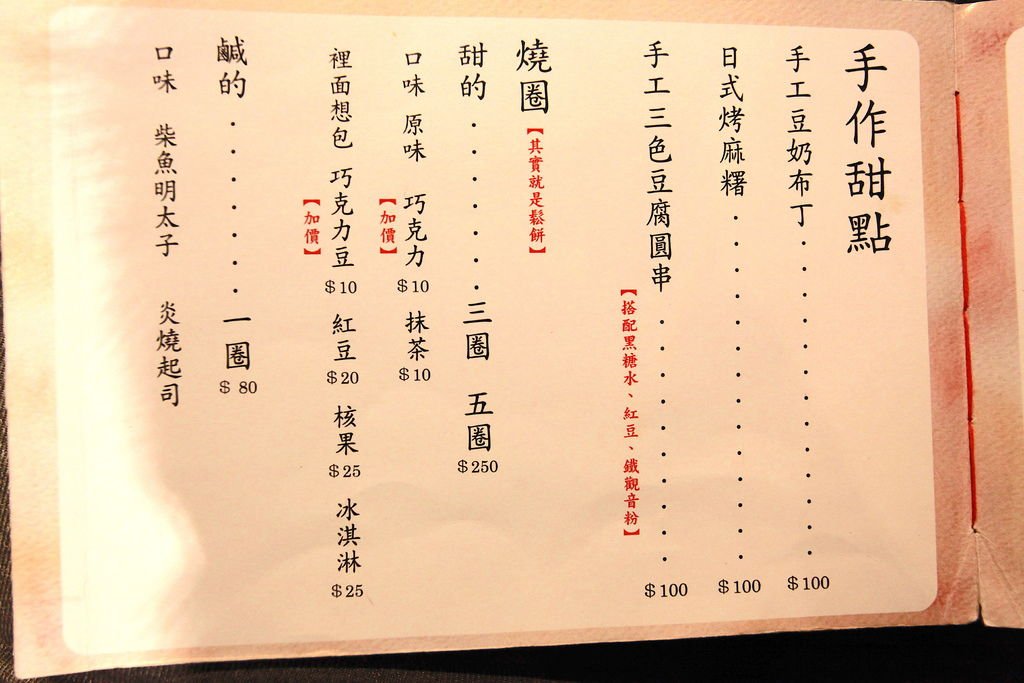 手作甜點
手工豆奶布丁‧‧‧‧‧‧‧‧‧‧‧‧‧＄100
日式烤麻糬‧‧‧‧‧‧‧‧‧‧‧‧‧‧＄100
手工三色豆腐圓串‧‧‧‧‧‧‧‧‧‧＄100
【搭配黑糖水、紅豆、鐵觀音粉】
燒圈【其實就是鬆餅】
甜的‧‧‧‧‧‧‧三圈 五圈＄250
口味 原味 巧克力＄10 抹茶＄10
【加價】
裡面想包 巧克力豆＄10 紅豆＄20 核果＄25 冰淇淋＄25
【加價】
鹹的‧‧‧‧‧‧‧一圈＄80
口味 柴魚明太子 炎燒起司